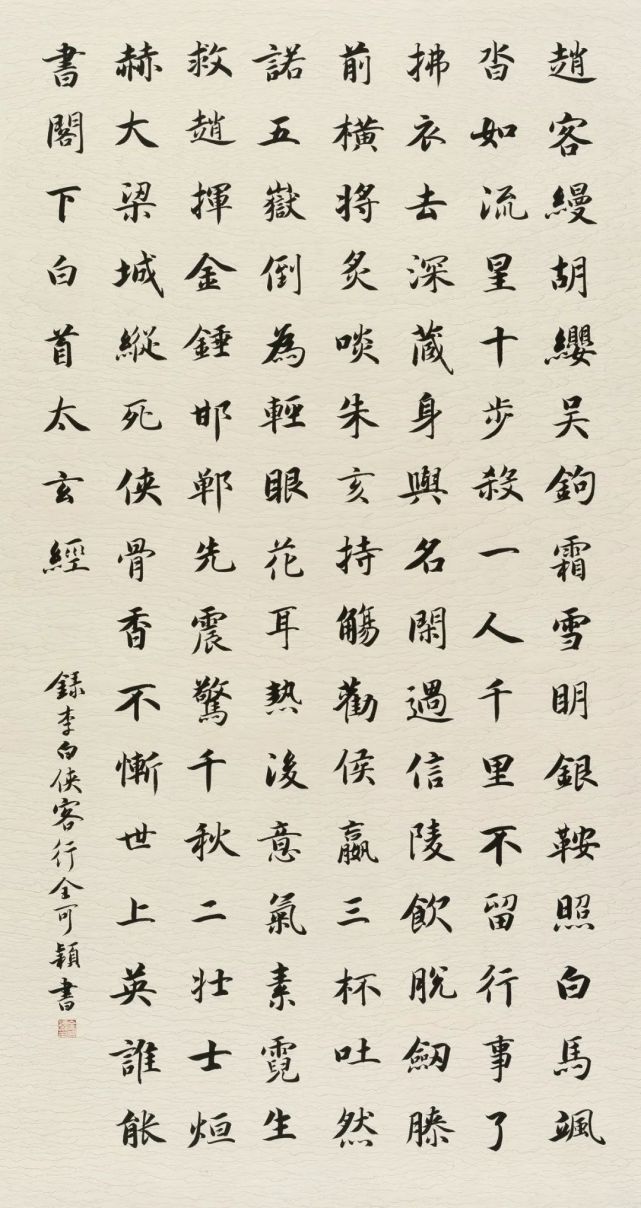 趙客縵胡纓吳鉤霜雪明銀鞍照白馬颯
沓如流星十步殺一人千里不留行事了
拂衣去深藏身與名閑過信陵飲脫劒膝
前橫將炙啖朱亥持觴勸侯嬴三杯吐然
諾五嶽倒為輕眼花耳熱後意氣素霓生
救趙揮金錘邯鄲先震驚千秋二壯士烜
赫大梁城縱死俠骨香不慚世上英誰能
書閣下白首太玄經
錄李白俠客行全可穎書